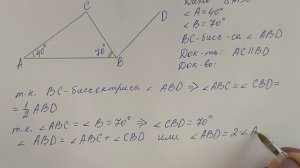 C
D
A
B
40°
70°
∠A=40°
∠B=70°
BC-бис-са ∠ABD
Док-ть: AC||BD
Док-во:
т.к. BC-биссектриса ∠ABD ⇒ ∠ABC=∠CBD=
=1/2 ABD
т.к. ∠ABC=∠B=70° ⇒ ∠CBD=70°
∠ABD=∠ABC+∠CBD или ∠ABD=2·∠A